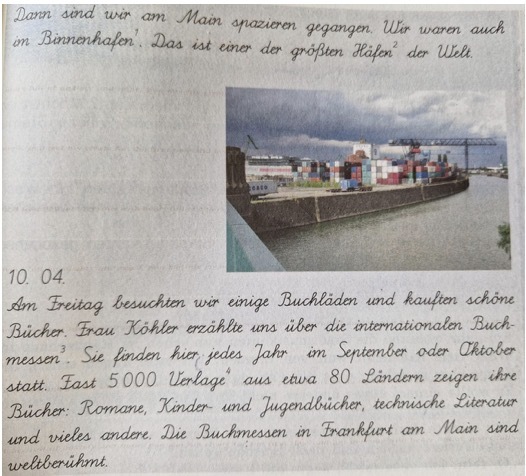 Dann sind wir am Main spazieren gegangen. Wir waren auch
im Binnenhafen¹. Das ist einer der größten Häfen² der Welt.
10. 04.
Am Freitag besuchten wir einige Buchläden und kauften schöne
Bücher. Frau Köhler erzählte uns über die internationalen Buch-
messen³. Sie finden hier jedes Jahr im September oder Oktober
statt. Fast 5000 Verlage⁴ aus etwa 80 Ländern zeigen ihre
Bücher: Romane, Kinder- und Jugendbücher, technische Literatur
und vieles andere. Die Buchmessen in Frankfurt am Main sind
weltberühmt.